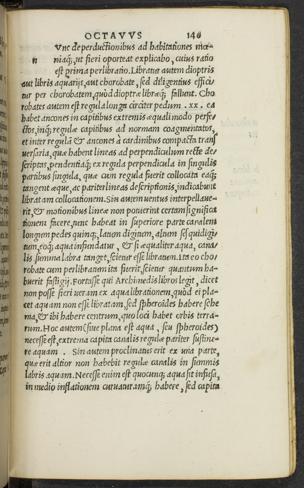 OCTAVVS 146
Vnc de perductionibus ad habitationes mœ-
N niaq́;, ut fieri oporteat explicabo, cuius ratio
est prima perlibratio. Libratur autem dioptris
aut libris aquarijs, aut chorobate, sed diligentius effici
tur per chorobatem, quòd dioptræ libræq́; fallunt. Cho
robates autem est regula longa circiter pedum .xx. ea
habet ancones in capitibus extremis æquali modo perfe
ctos, inq́; regulæ capitibus ad normam coagmentatos,
et inter regulā & ancones à cardinibus compacta trans
uersaria, quæ habent lineas ad perpendiculum recte de-
scriptas, pendentiaq́; ex regula perpendicula in singulis
partibus singula, quæ cum regula fuerit collocata eaq́;
tangent æque, ac pariter lineas descriptionis, indicabunt
libratam collocationem. Sin autem uentus interpellaue-
rit, & motionibus lineæ non poterint certam significa
tionem facere, tunc habeat in superiore parte canalem
longum pedes quinq;, latum digitum, altum sesquidigi-
tum, eoq́; aqua infundatur, & si æqualiter aqua, cana-
lis summa labra tanget, scietur esse libratum. Ita eo cho
robate cum perlibratum ita fuerit, scietur quantum ha-
buerit fastigij. Fortasse qui Archimedis libros legit, dicet
non posse fieri ueram ex aqua librationem, quòd ei pla-
cet aquam non esse libratam, sed sphæroides habere sche
ma, & ibi habere centrum, quo loci habet orbis terra-
rum. Hoc autem siue plana est aqua, seu sphæroides
necesse est, extrema capita canalis regulæ pariter sustine-
re aquam. Sin autem proclinatus erit ex una parte,
quæ erit altior non habebit regulæ canalis in summis
labris aquam. Necesse enim est quocunq; aqua sit infusa,
in medio inflationem curuaturamq́; habere, sed capita